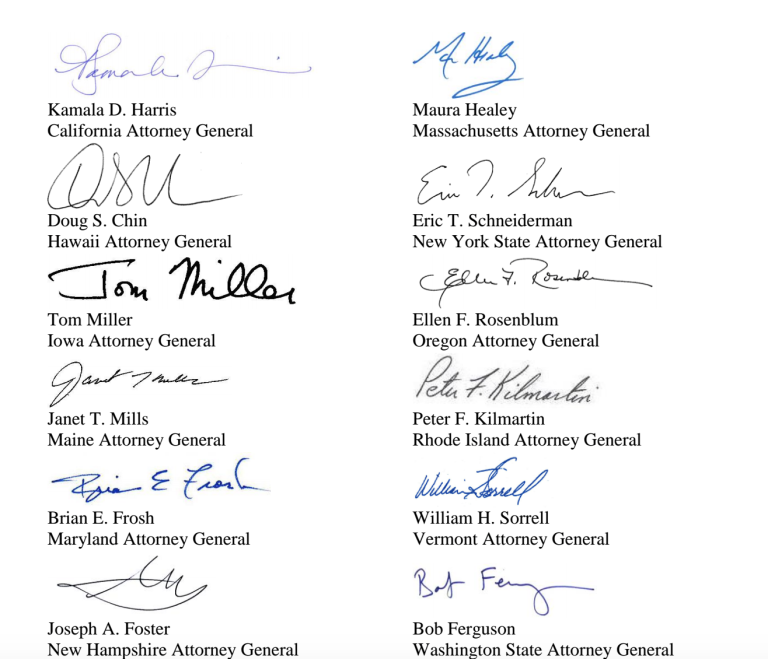 Kamala D. Harris
California Attorney General
Doug S. Chin
Hawaii Attorney General
Tom Miller
Tom Miller
Iowa Attorney General
Janet T. Mills
Maine Attorney General
Brian E Frosh
Brian E. Frosh
Maryland Attorney General
Joseph A. Foster
New Hampshire Attorney General
Maura Healey
Massachusetts Attorney General
Eric T. Schneiderman
New York State Attorney General
Ellen F. Rosenblum
Ellen F. Rosenblum
Oregon Attorney General
Peter F. Kilmartin
Peter F. Kilmartin
Rhode Island Attorney General
William Sorrell
William H. Sorrell
Vermont Attorney General
Bob Ferguson
Washington State Attorney General